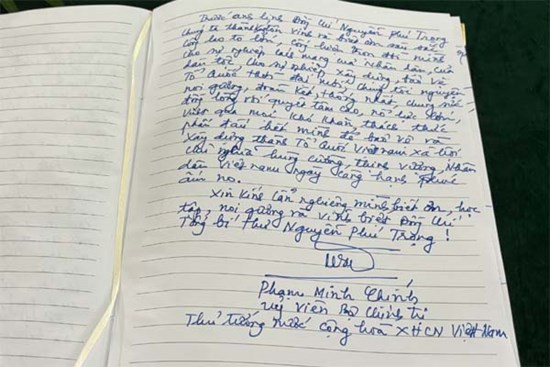 Trước anh linh Đồng Chí Nguyễn Phú Trọng
Chúng ta thành kính và biết ơn sâu sắc
công lao to lớn, cống hiến trọn đời mình
cho sự nghiệp cách mạng của Nhân dân, của
dân tộc, cho sự nghiệp xây dựng bảo vệ
Tổ Quốc thời đại mới; Chúng tôi nguyện
noi gương, đoàn kết, thống nhất, chung sức
đồng lòng với quyết tâm cao, nỗ lực lớn,
vượt qua mọi khó khăn, thách thức
phấn đấu hết mình để bảo vệ và
xây dựng thành Tổ quốc Việt nam xã hội
chủ nghĩa hùng cường, thịnh vượng, Nhân
dân Việt nam ngày càng hạnh phúc
ấm no.
Xin kính cẩn nghiêng mình biết ơn, học
tập, noi gương và vĩnh biệt Đồng Chí
Tổng bí thư Nguyễn Phú Trọng!
Phạm Minh Chính
Uỷ viên Bộ Chính trị
Thủ tướng nước cộng hoà XHCN Việt-Nam